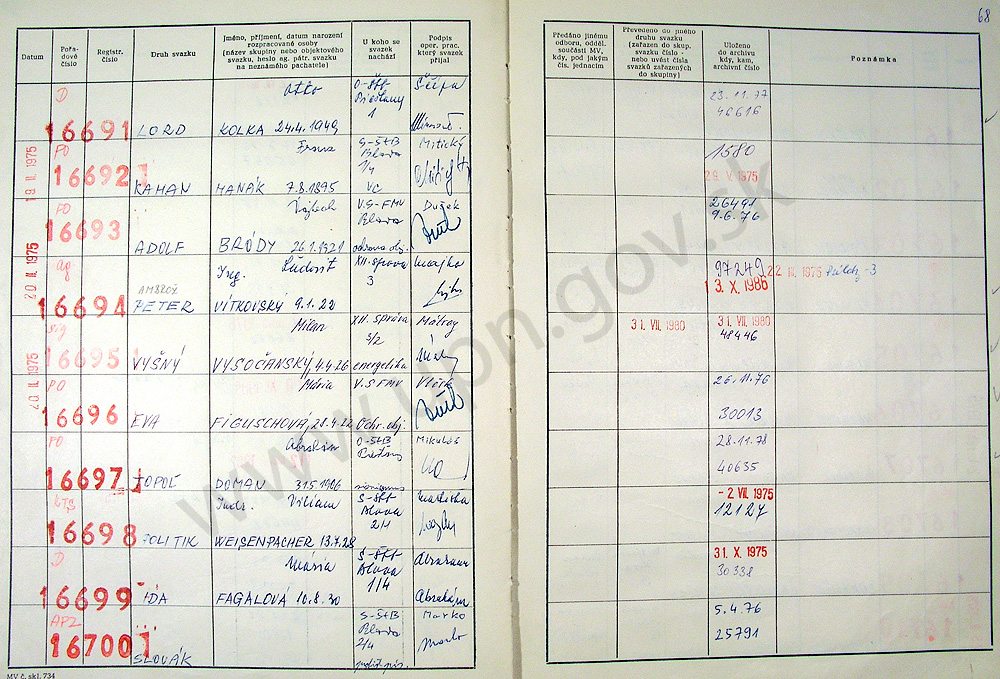 68
Datum
Pořadové číslo
Registr. číslo
Druh svazku
Jméno, příjmení, datum narození
rozpracované osoby
(název skupiny nebo objektového
svazku, heslo ag. pátr. svazku
na neznámého pachatele)
U koho se
svazek
nachází
Podpis
oper. prac.
který svazek
přijal
Předáno jinému
odboru, odděl.
součásti MV,
kdy, pod jakým
čís. jednacím
Převedeno do jiného
druhu svazku
(zařazen do skup.
svazku číslo -
nebo uvést čísla
svazků zařazených
do skupiny)
Uloženo
do archivu
kdy, kam,
archivní číslo
Poznámka
D
16691 LORD
Otto
KOLKA 24.4.1949
1
23.11.77
46616
19 II. 1975
PO
16692 KAHAN
HANÁK 7.8.1895
S-ŠtB
Blava
1/4
VC
Mitický
1580
29. V. 1975
PO
16693 ADOLF
Vojtech
BRÓDY 26.1.1921
V.S-FMV
Blava
Dušek
26491
9.6.76
20 II. 1975
Ag
16694 AMBROŽ
PETER
Ing. Ľudovít
VÍTKOVSKÝ 9.1.22
XII. správa
3
97249
13. X. 1986
22. III. 1976
sig
16695 VYŠNÝ
Milan
VYSOČANSKÝ, 4.4.26
XII. správa
5/2
energetika
31. VII. 1980
31. VII. 1980
48446
20 II. 1975
PO
16696 EVA
Mária
FIGUSCHOVÁ, 28.4.22
V.S FMV
Ochr. obj.
26.11.76
30013
PO
16697 TOPOĽ
Abrahám
DOMAN 31.5.1906
O-ŠtB
Mikuláš
28.11.78
40635
16698 POLITIK
Viliam
WEISENPACHER 13.7.28
S-ŠtB
Blava
2/1
- 2 VII. 1975
12127
D
16699 IDA
Mária
FAGALOVÁ 10.8.30
S-ŠtB
Blava
1/4
Abrahám
31. X. 1975
30338
APZ
16700 SLOVÁK
S-ŠtB
Blava
2/4
Marko
5.4.76
25791
MV č. skl. 734
www.upn.gov.sk